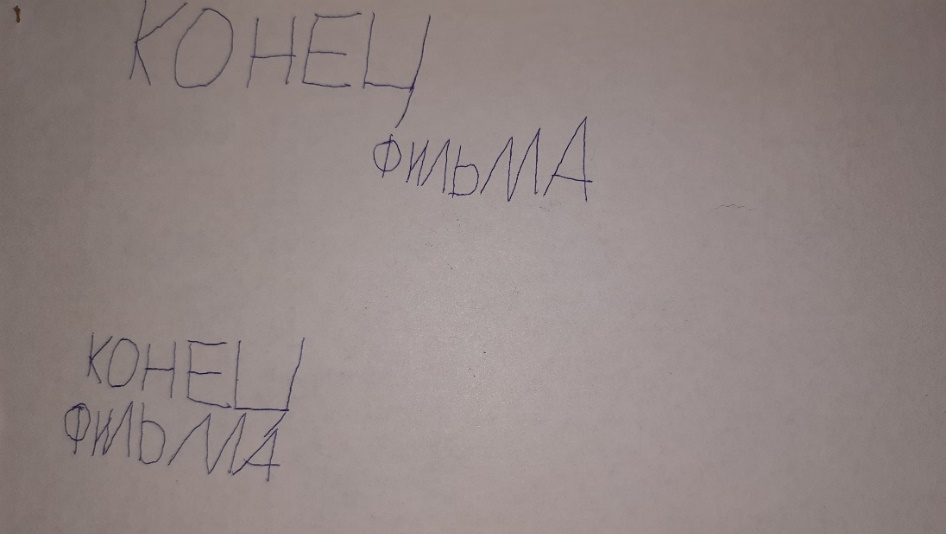 КОНЕЦ
ФИЛЬМА
КОНЕЦ
ФИЛЬМА